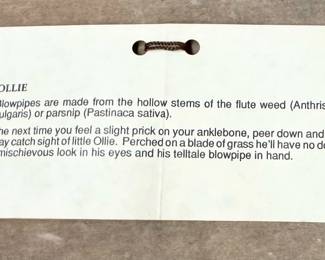 OLLIE
Blowpipes are made from the hollow stems of the flute weed (Anthris
ulgaris) or parsnip (Pastinaca sativa).
he next time you feel a slight prick on your anklebone, peer down and
ay catch sight of little Ollie. Perched on a blade of grass he'll have no do
mischievous look in his eyes and his telltale blowpipe in hand.